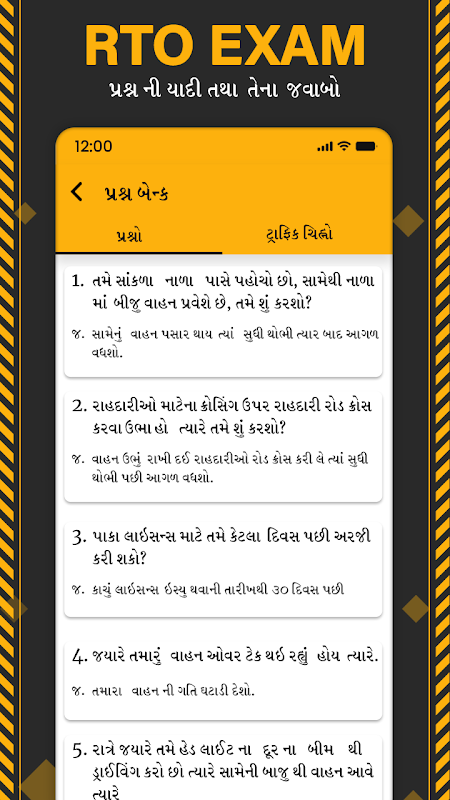 RTO EXAM
પ્રશ્ન ની યાદી તથા તેના જવાબો
12:00
પ્રશ્ન બેન્ક
પ્રશ્નો
ટ્રાફિક ચિહ્નો
1. તમે સાંકળા નાળા પાસે પહોચો છો, સામેથી નાળા
માં બીજુ વાહન પ્રવેશે છે, તમે શું કરશો?
જ. સામેનું વાહન પસાર થાય ત્યાં સુધી થોભી ત્યાર બાદ આગળ
વધશો.
2. રાહદારીઓ માટેના ક્રોસિંગ ઉપર રાહદારી રોડ ક્રોસ
કરવા ઉભા હો ત્યારે તમે શું કરશો?
જ. વાહન ઉભું રાખી દઈ રાહદારીઓ રોડ ક્રોસ કરી લે ત્યાં સુધી
થોભી પછી આગળ વધશો.
3. પાકા લાઇસન્સ માટે તમે કેટલા દિવસ પછી અરજી
કરી શકો?
જ. કાચું લાઇસન્સ ઇસ્યુ થવાની તારીખથી ૩૦ દિવસ પછી
4. જયારે તમારું વાહન ઓવર ટેક થઇ રહ્યું હોય ત્યારે.
જ. તમારા વાહન ની ગતિ ઘટાડી દેશો.
5. રાત્રે જયારે તમે હેડ લાઈટ ના દૂર ના બીમ થી
ડ્રાઈવિંગ કરો છો ત્યારે સામેની બાજુ થી વાહન આવે
ત્યારે